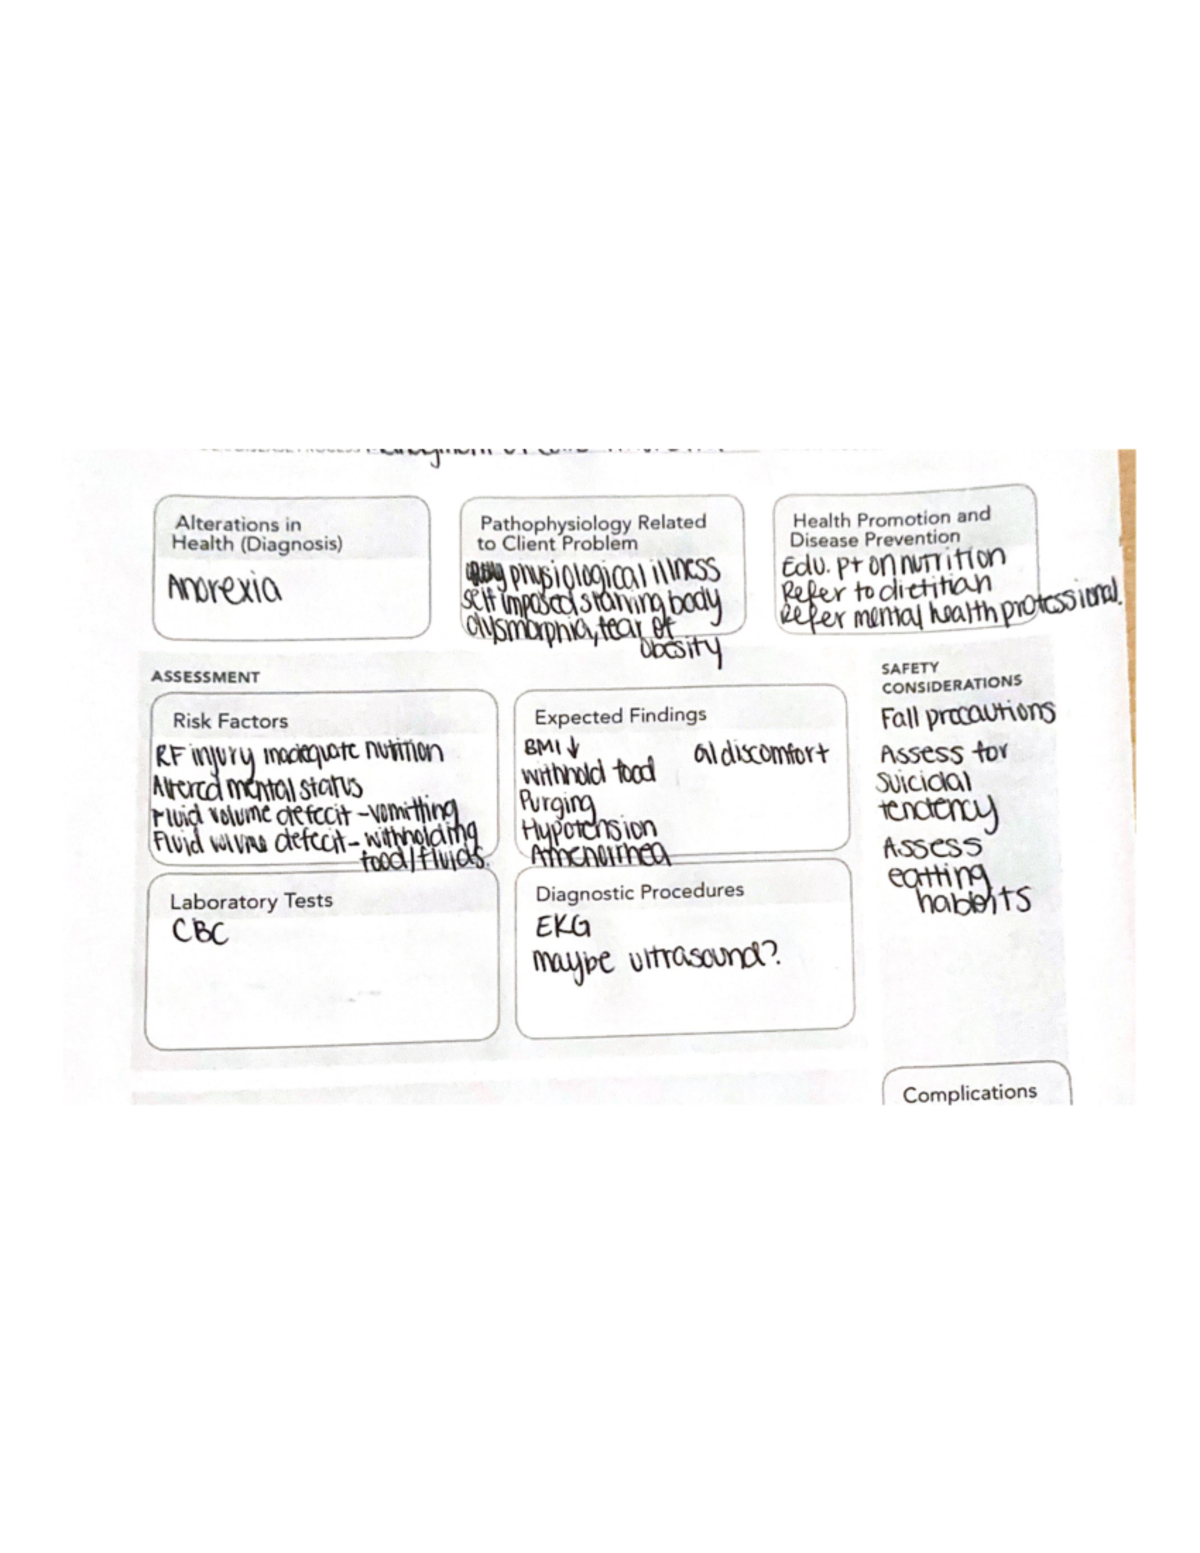 Alterations in
Health (Diagnosis)
Anorexia
Pathophysiology Related
to Client Problem
physiological illness
self imposed starving body
dysmorphia, fear of
obesity
Health Promotion and
Disease Prevention
Edu. pt on nutrition
Refer to dietitian
Refer mental health professional.
ASSESSMENT
Risk Factors
RF injury inadequate nutrition
Altered mental status
Fluid volume defecit - vomitting
Fluid volume defecit - withholding
food/fluids.
Expected Findings
BMI ↓
GI discomfort
withhold food
Purging
Hypotension
Amenorrhea
Laboratory Tests
CBC
Diagnostic Procedures
EKG
maybe ultrasound?
SAFETY
CONSIDERATIONS
Fall precautions
Assess for
suicidal
tendency
Assess
eatting
habits
Complications